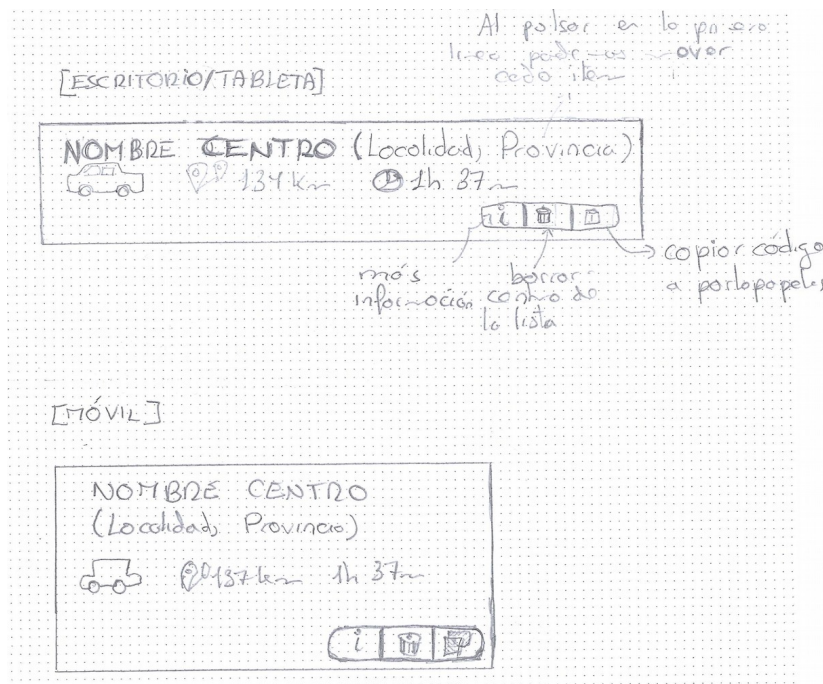 Al pulsar en la primera
línea podremos mover
cada item
[ESCRITORIO/TABLETA]
NOMBRE CENTRO (Localidad, Provincia)
134 km 1h 37m
i
más
información
borrar
centro de
la lista
copiar código
a portapapeles
[MÓVIL]
NOMBRE CENTRO
(Localidad, Provincia)
137 km 1h 37m
i